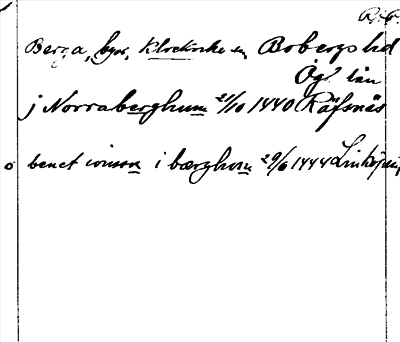 R. 6.
Berga, byar, Klockrike sn Bobergs hd
Ögl. län
j Norraberghum 21/10 1440 Räfsnäs
o benct ionson i bærghom 29/6 1444 Linköping